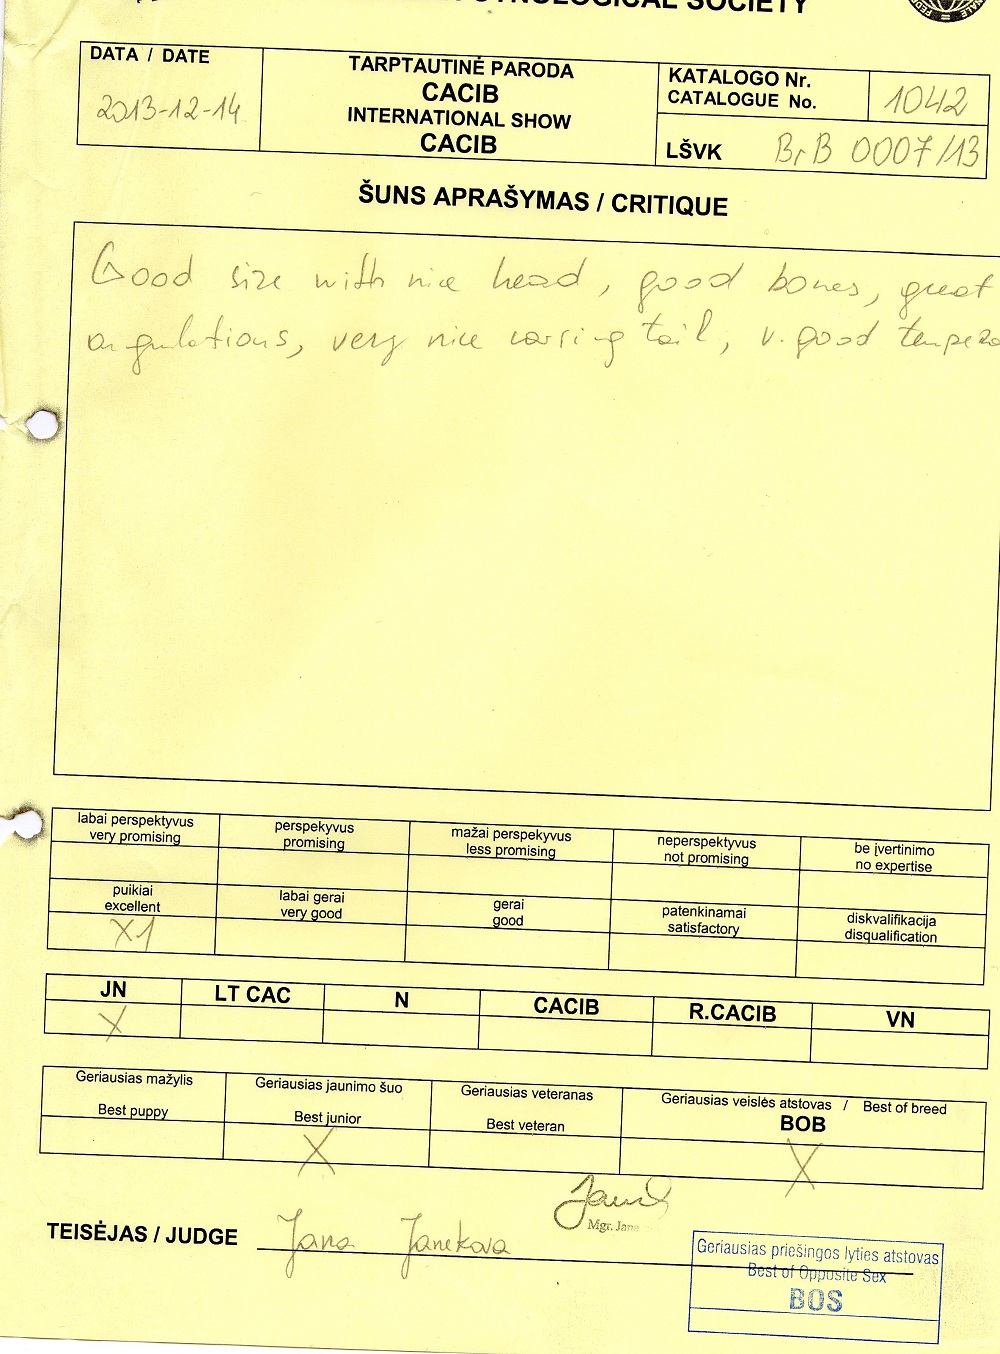 SOCIETY
DATA / DATE
2013-12-14
TARPTAUTINĖ PARODA
CACIB
INTERNATIONAL SHOW
CACIB
KATALOGO Nr.
CATALOGUE No.
1042
LŠVK BrB 0007/13
ŠUNS APRAŠYMAS / CRITIQUE
Good size with nice head, good bones, great
angulations, very nice carring tail, v. good tempera
labai perspektyvus
very promising
perspekyvus
promising
mažai perspekyvus
less promising
neperspektyvus
not promising
be įvertinimo
no expertise
puikiai
excellent
X1
labai gerai
very good
gerai
good
patenkinamai
satisfactory
diskvalifikacija
disqualification
JN LT CAC N CACIB R.CACIB VN
X
Geriausias mažylis
Best puppy
Geriausias jaunimo šuo
Best junior
X
Geriausias veteranas
Best veteran
Geriausias veislės atstovas / Best of breed
BOB
X
Mgr. Jana
TEISĖJAS / JUDGE Jana Janekova
Geriausias priešingos lyties atstovas
Best of Opposite Sex
BOS